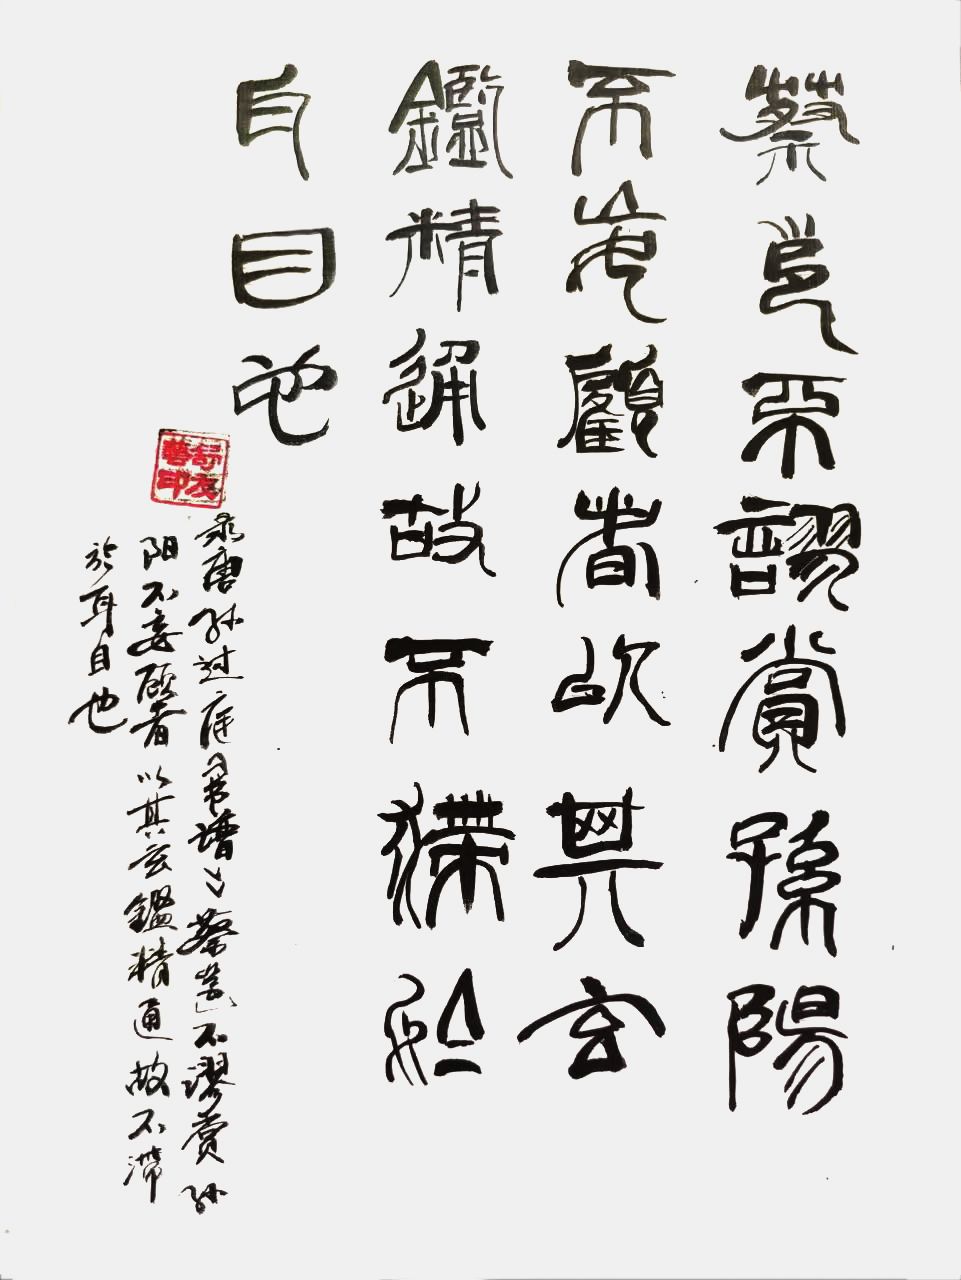 蔡邕不謬賞孫陽
不妄顧者以其玄
鑑精通故不滯於
耳目也
舒友
藝印
录唐孙过庭書譜蔡邕不謬賞孙
阳不妄顾者以其玄鑑精通故不滯
於耳目也